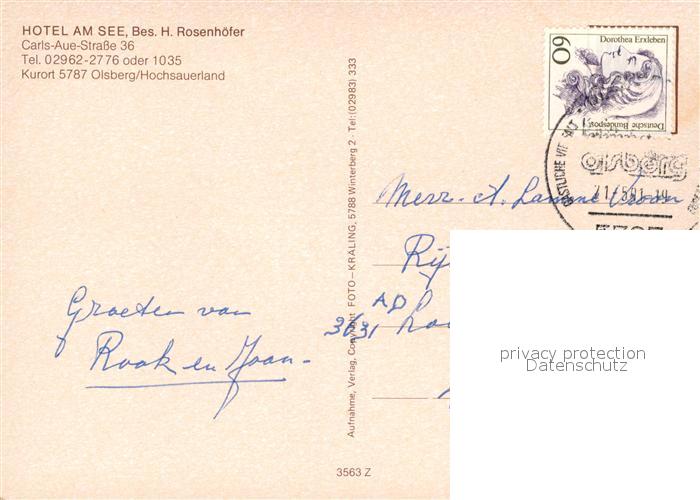 HOTEL AM SEE, Bes. H. Rosenhöfer
Carls-Aue-Straße 36
Tel. 02962-2776 oder 1035
Kurort 5787 Olsberg/Hochsauerland
Groeten van
Rook en Joan-
Aufnahme, Verlag, Copyright FOTO-KRALING, 5788 Winterberg 2 · Tel: (02983) 333
3563 Z
Dorothea Erxleben
60
Deutsche Bundespost
olsberg
5787
A.
Rij
3631 AD
privacy protection
Datenschutz